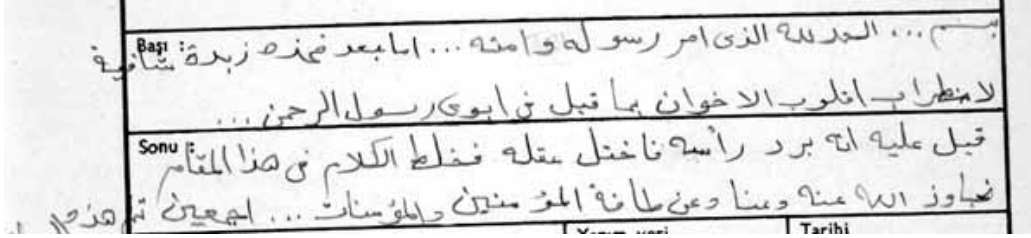 Başı : بسم ... الحمد لله الذى امر رسوله وامته ... اما بعد فهذه زبدة شافية
لاضطراب قلوب الاخوان بما قيل فى ابوى رسول الرحمن ...
Sonu : قيل عليه انه برد رأسه فاختل عقله فخلط الكلام فى هذا المقام
تجاوز الله عنه وعنا وعن كافة المؤمنين والمؤمنات ... اجمعين تم هذه
Yazım yeri Tarihi